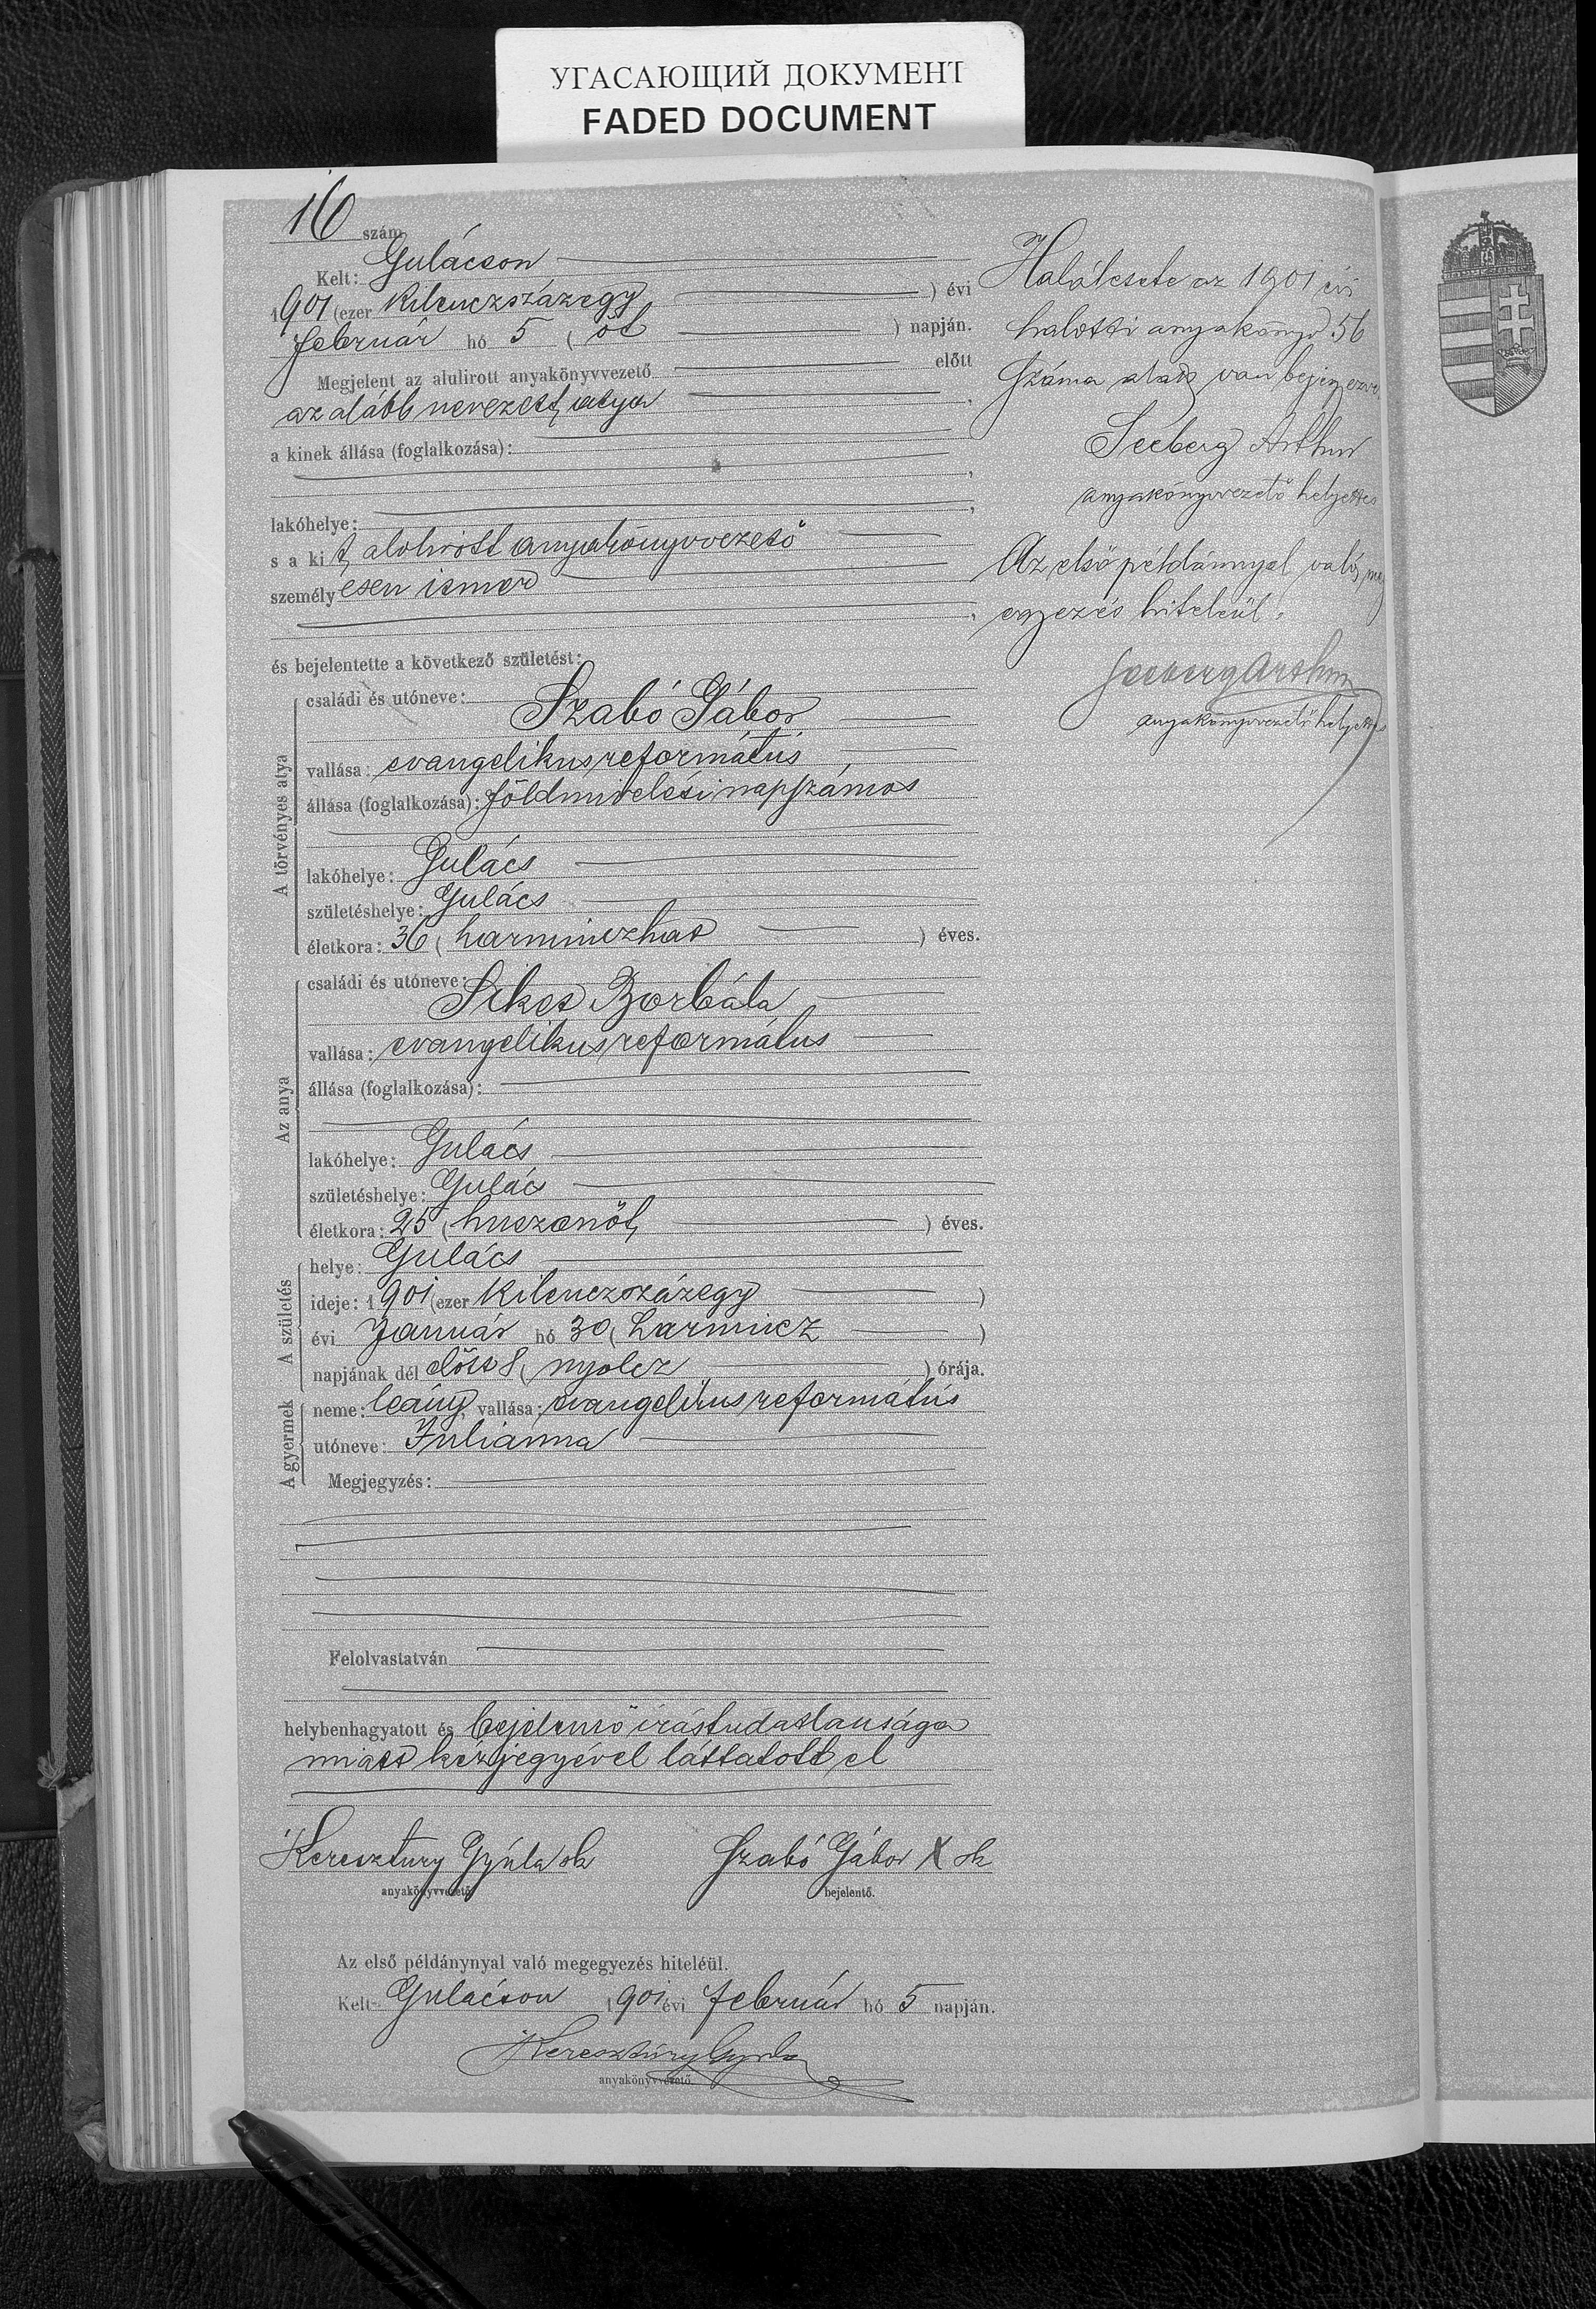 УГАСАЮЩИЙ ДОКУМЕНТ
FADED DOCUMENT
16 szám
Kelt: Gulácson
1901 (ezer kilenczszázegy ) évi
február hó 5 ( öt ) napján.
Megjelent az alulirott anyakönyvvezető előtt
az alább nevezett atya ,
a kinek állása (foglalkozása):
,
lakóhelye: ,
s a kit alolirott anyakönyvvezető
személyesen ismer
,
és bejelentette a következő születést:
A törvényes atya
családi és utóneve:
Szabó Gábor
vallása: evangelikus református
állása (foglalkozása): földmivelési napszámos
lakóhelye: Gulács
születéshelye: Gulács
életkora: 36 ( harminczhat ) éves.
Az anya
családi és utóneve:
Sikes Borbála
vallása: evangelikus református
állása (foglalkozása):
lakóhelye: Gulács
születéshelye: Gulács
életkora: 25 ( huszonöt ) éves.
A születés
helye: Gulács
ideje: 1901 (ezer kilenczszázegy )
évi Január hó 30 ( harmincz )
napjának dél előtt 8 ( nyolcz ) órája.
A gyermek
neme: leány, vallása: evangelikus református
utóneve: Julianna
Megjegyzés:
Felolvastatván
helybenhagyatott és bejelentő irástudatlansága
miatt kézjegyével láttatott el
Keresztury Gyula sk Szabó Gábor X sk
anyakönyvvezető bejelentő.
Az első példánynyal való megegyezés hiteléül.
Kelt Gulácson 1901 évi február hó 5 napján.
Keresztúry Gyula
anyakönyvvezető
Halálesete az 1901 évi
halotti anyakönyv 56
száma alatt van bejegyezve.
Seeberg Arthur
anyakönyvvezető helyettes
Az első példánnyal való meg
egyezés hiteléül.
Seeberg Arthur
anyakönyvvezető helyettes